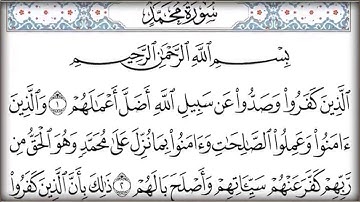 سُورَةُ مُحَمَّدٍ
بِسْمِ اللَّهِ الرَّحْمَٰنِ الرَّحِيمِ
الَّذِينَ كَفَرُوا۟ وَصَدُّوا۟ عَن سَبِيلِ اللَّهِ أَضَلَّ أَعْمَٰلَهُمْ ١ وَالَّذِينَ
ءَامَنُوا۟ وَعَمِلُوا۟ الصَّٰلِحَٰتِ وَءَامَنُوا۟ بِمَا نُزِّلَ عَلَىٰ مُحَمَّدٍ وَهُوَ الْحَقُّ مِن
رَّبِّهِمْ كَفَّرَ عَنْهُمْ سَيِّـَٔاتِهِمْ وَأَصْلَحَ بَالَهُمْ ٢ ذَٰلِكَ بِأَنَّ الَّذِينَ كَفَرُوا۟